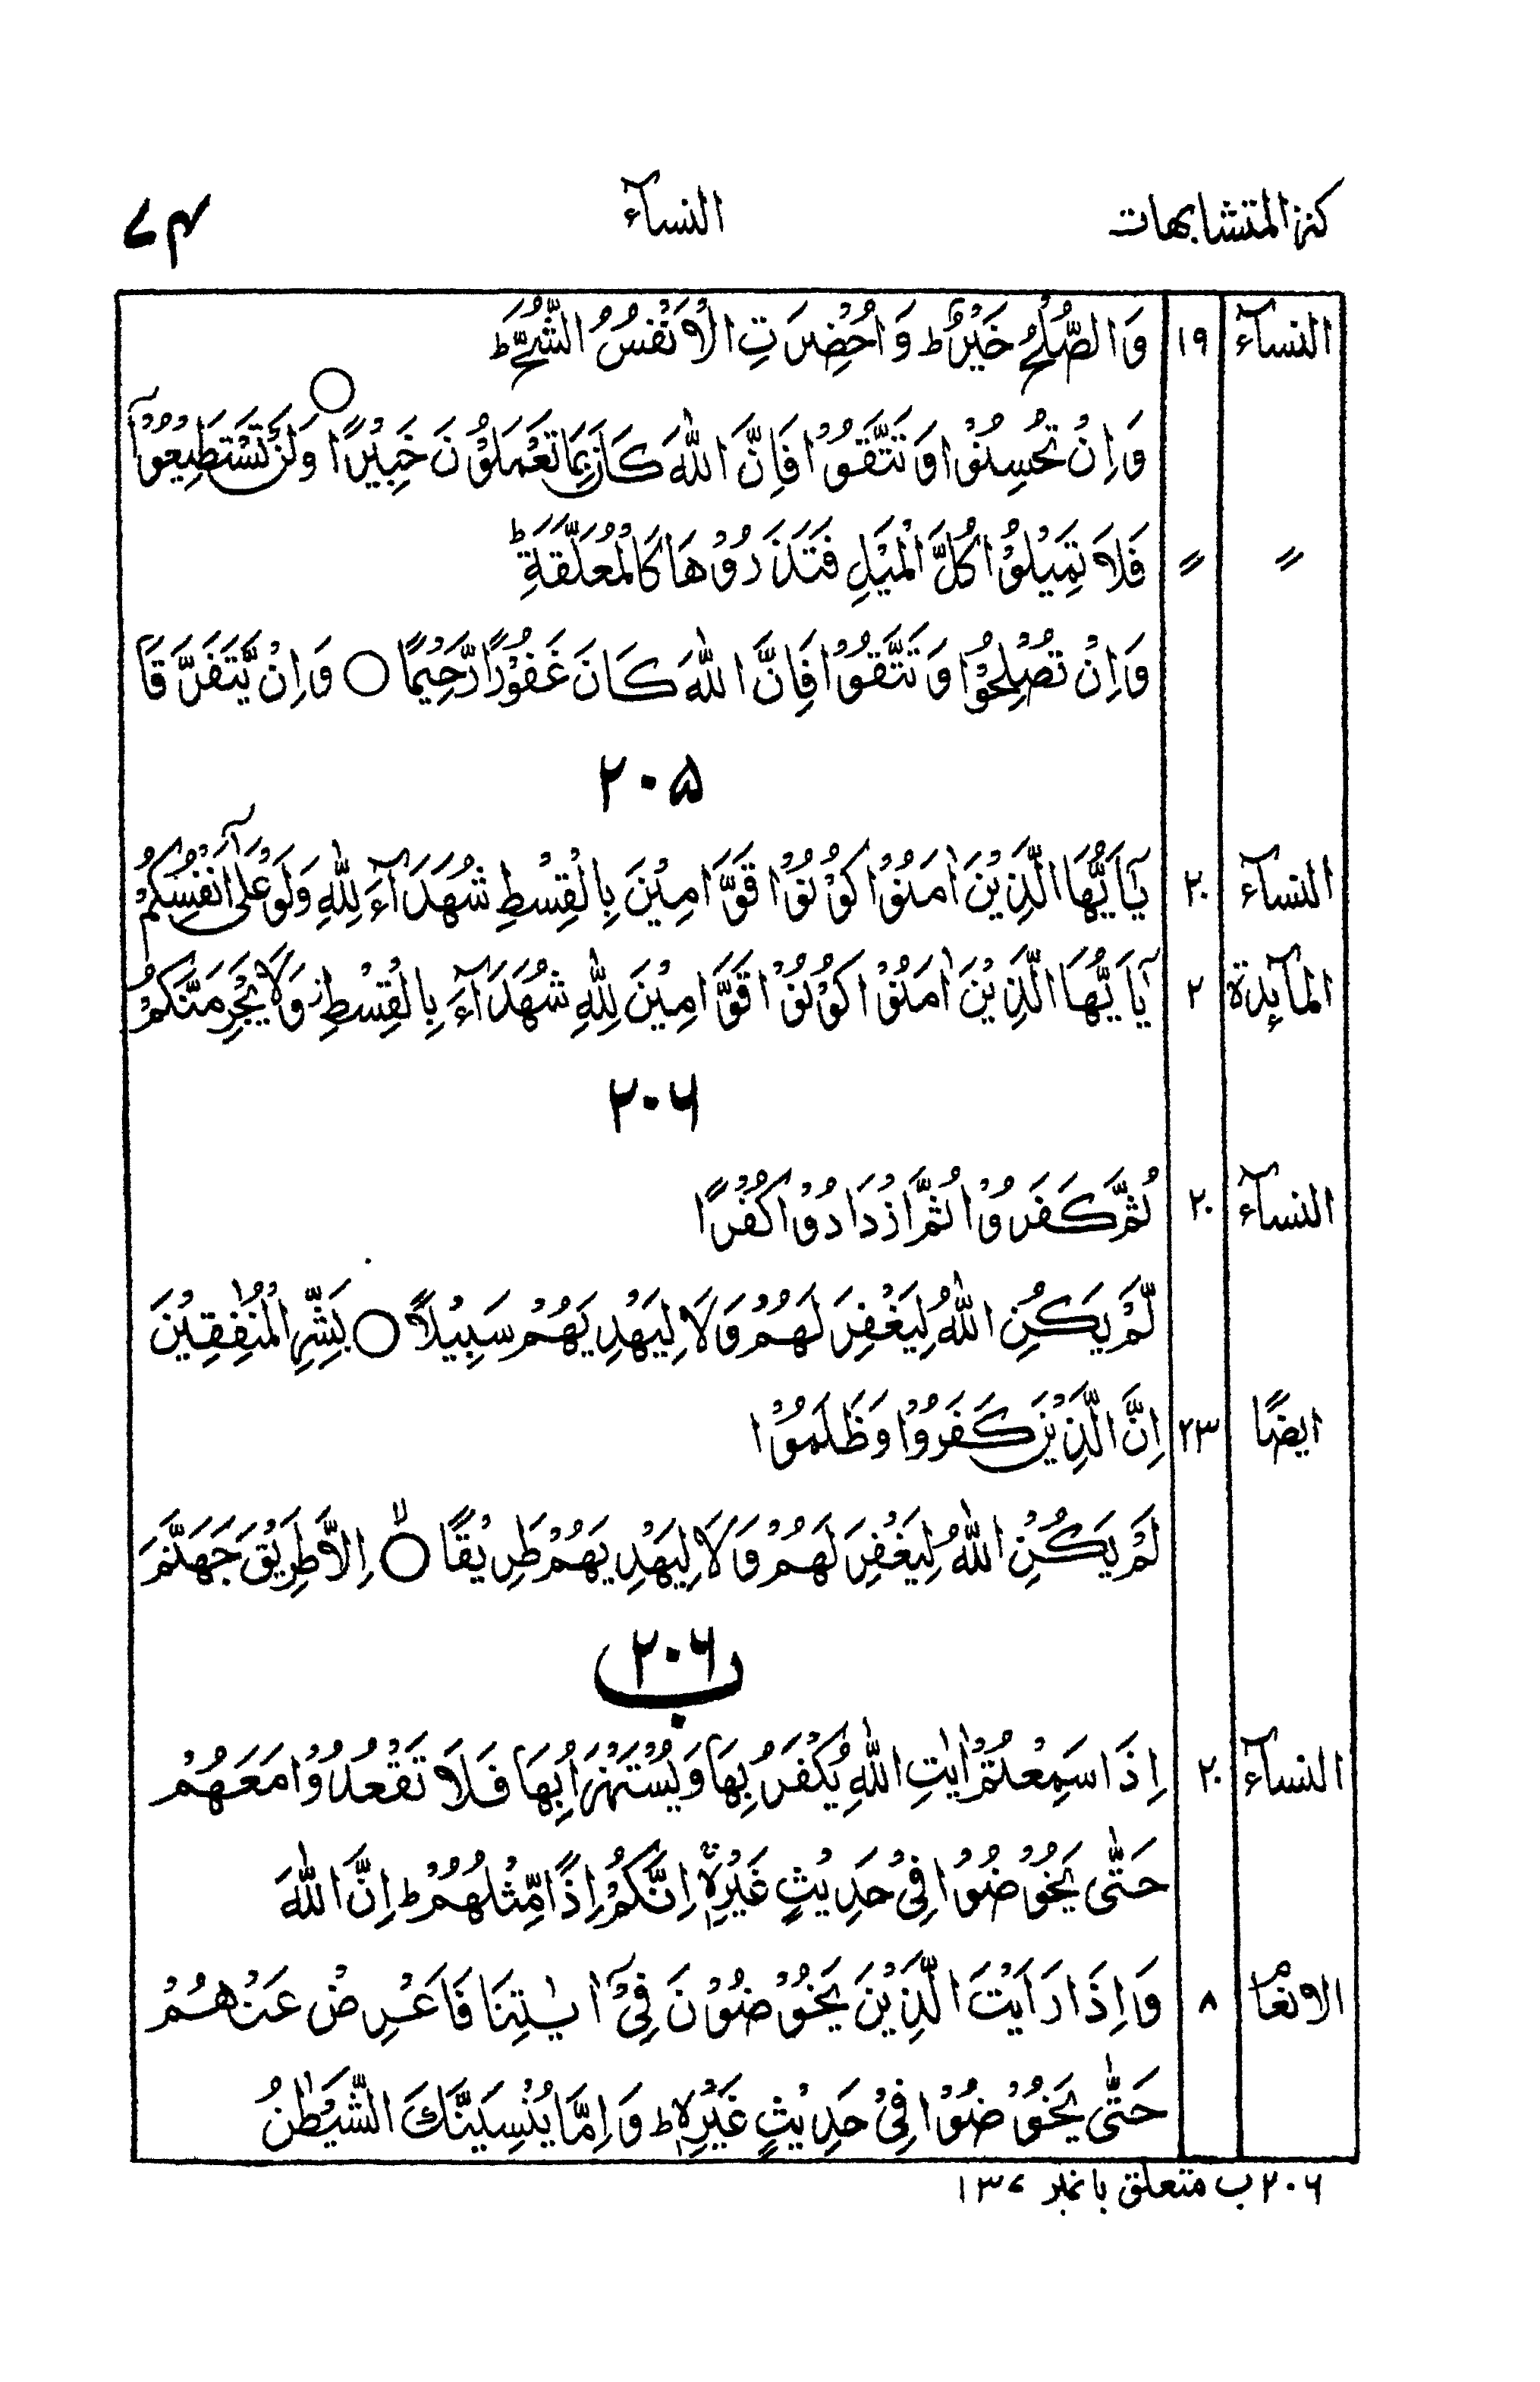 كنز المتشابهات النسآء ۷۴
النسآء ۱۹ وَالصُّلْحُ خَيْرٌ ؕ وَاُحْضِرَتِ الْاَنْفُسُ الشُّحَّ ؕ
وَاِنْ تُحْسِنُوْا وَتَتَّقُوْا فَاِنَّ اللّٰهَ كَانَ بِمَا تَعْمَلُوْنَ خَبِيْرًا ○ وَلَنْ تَسْتَطِيْعُوْۤا
〃 〃 فَلَا تَمِيْلُوْا كُلَّ الْمَيْلِ فَتَذَرُوْهَا كَالْمُعَلَّقَةِ ؕ
وَاِنْ تُصْلِحُوْا وَتَتَّقُوْا فَاِنَّ اللّٰهَ كَانَ غَفُوْرًا رَّحِيْمًا ○ وَاِنْ يَّتَفَرَّقَا
۲۰۵
النسآء ۲۰ يٰۤاَيُّهَا الَّذِيْنَ اٰمَنُوْا كُوْنُوْا قَوّٰمِيْنَ بِالْقِسْطِ شُهَدَآءَ لِلّٰهِ وَلَوْ عَلٰۤى اَنْفُسِكُمْ
المآئدة ۲ يٰۤاَيُّهَا الَّذِيْنَ اٰمَنُوْا كُوْنُوْا قَوّٰمِيْنَ لِلّٰهِ شُهَدَآءَ بِالْقِسْطِ ز وَلَا يَجْرِمَنَّكُمْ
۲۰۶
النسآء ۲۰ ثُمَّ كَفَرُوْا ثُمَّ ازْدَادُوْا كُفْرًا
لَّمْ يَكُنِ اللّٰهُ لِيَغْفِرَ لَهُمْ وَلَا لِيَهْدِيَهُمْ سَبِيْلًا ○ بَشِّرِ الْمُنٰفِقِيْنَ
ايضًا ۲۳ اِنَّ الَّذِيْنَ كَفَرُوْا وَظَلَمُوْا
لَمْ يَكُنِ اللّٰهُ لِيَغْفِرَ لَهُمْ وَلَا لِيَهْدِيَهُمْ طَرِيْقًا ○ۙ اِلَّا طَرِيْقَ جَهَنَّمَ
۲۰۶ ب
النسآء ۲۰ اِذَا سَمِعْتُمْ اٰيٰتِ اللّٰهِ يُكْفَرُ بِهَا وَيُسْتَهْزَاُ بِهَا فَلَا تَقْعُدُوْا مَعَهُمْ
حَتّٰى يَخُوْضُوْا فِيْ حَدِيْثٍ غَيْرِهٖۤ ۖ اِنَّكُمْ اِذًا مِّثْلُهُمْ ؕ اِنَّ اللّٰهَ
الانعام ۸ وَاِذَا رَاَيْتَ الَّذِيْنَ يَخُوْضُوْنَ فِيْۤ اٰيٰتِنَا فَاَعْرِضْ عَنْهُمْ
حَتّٰى يَخُوْضُوْا فِيْ حَدِيْثٍ غَيْرِهٖ ؕ وَاِمَّا يُنْسِيَنَّكَ الشَّيْطٰنُ
۲۰۶ ب متعلق با نمبر ۱۳۷